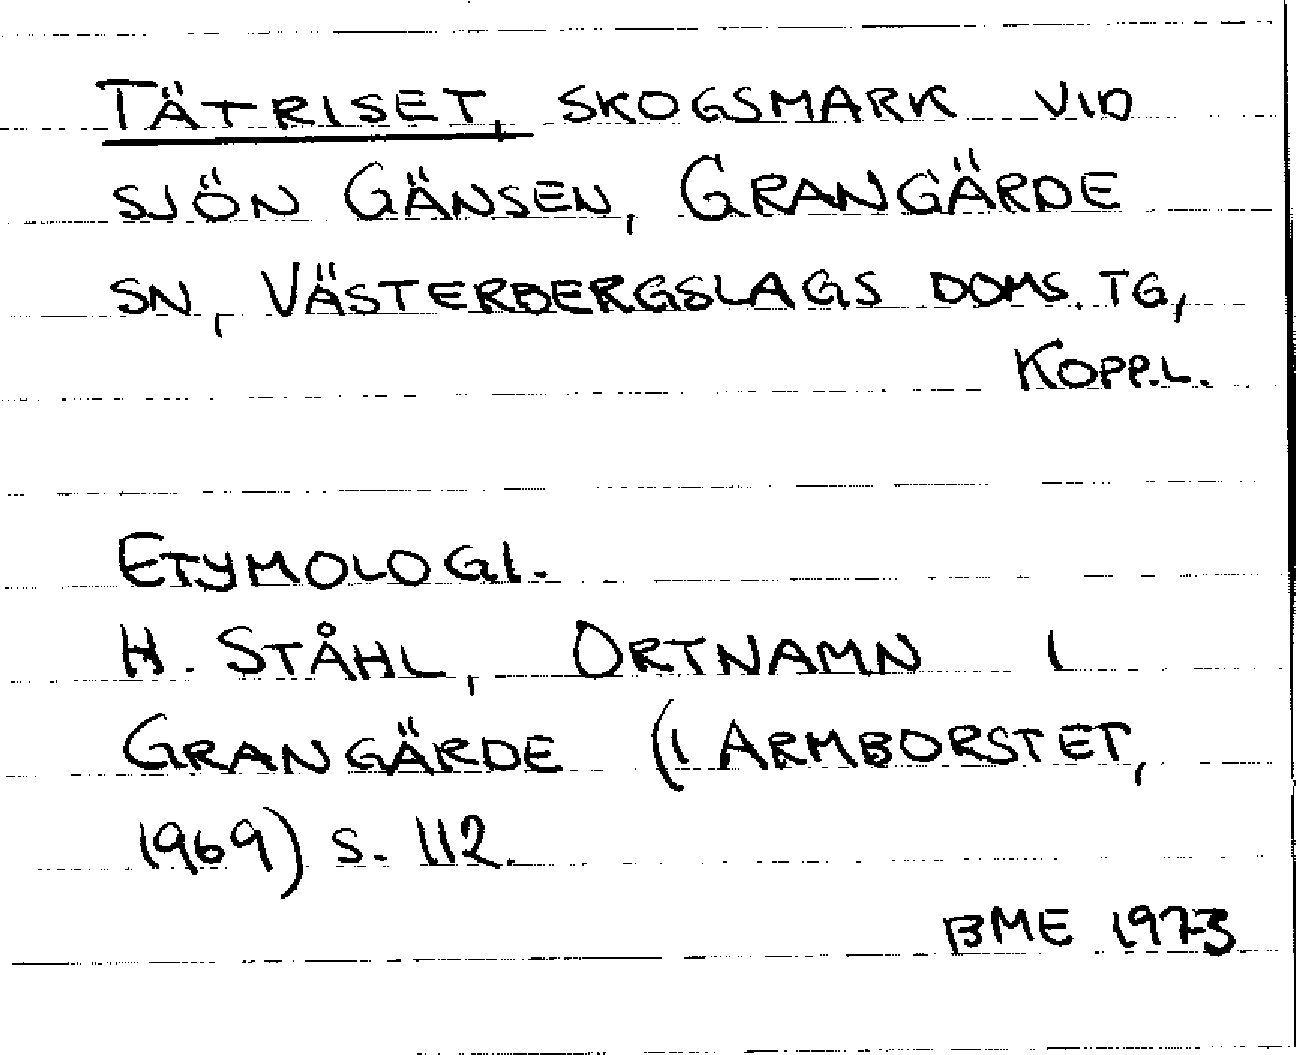 TÄTRISET, SKOGSMARK VID
SJÖN GÄNSEN, GRANGÄRDE
SN, VÄSTERBERGSLAGS DOMS. TG,
KOPP.L.
ETYMOLOGI.
H. STÅHL, ORTNAMN I
GRANGÄRDE (I ARMBORSTET,
1969) S. 112.
BME 1973